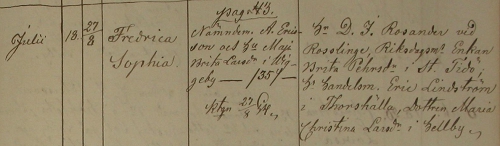 pag. 43.
Julii 18 27/8 Fredrica
Sophia.
Nämndem. A. Erics-
son och Hu Maja
Brita Larsdr i
geby — 1357 —
ktgn 27/8
Hr D. J. Rosander ved
Rosslinge, Riksdagsm. Enkan
Brita Pehrsdr i St.
Hr Handelsm. Eric Lindström
i Thorshälla, Dottren Maria
Christina Larsdr i Hellby